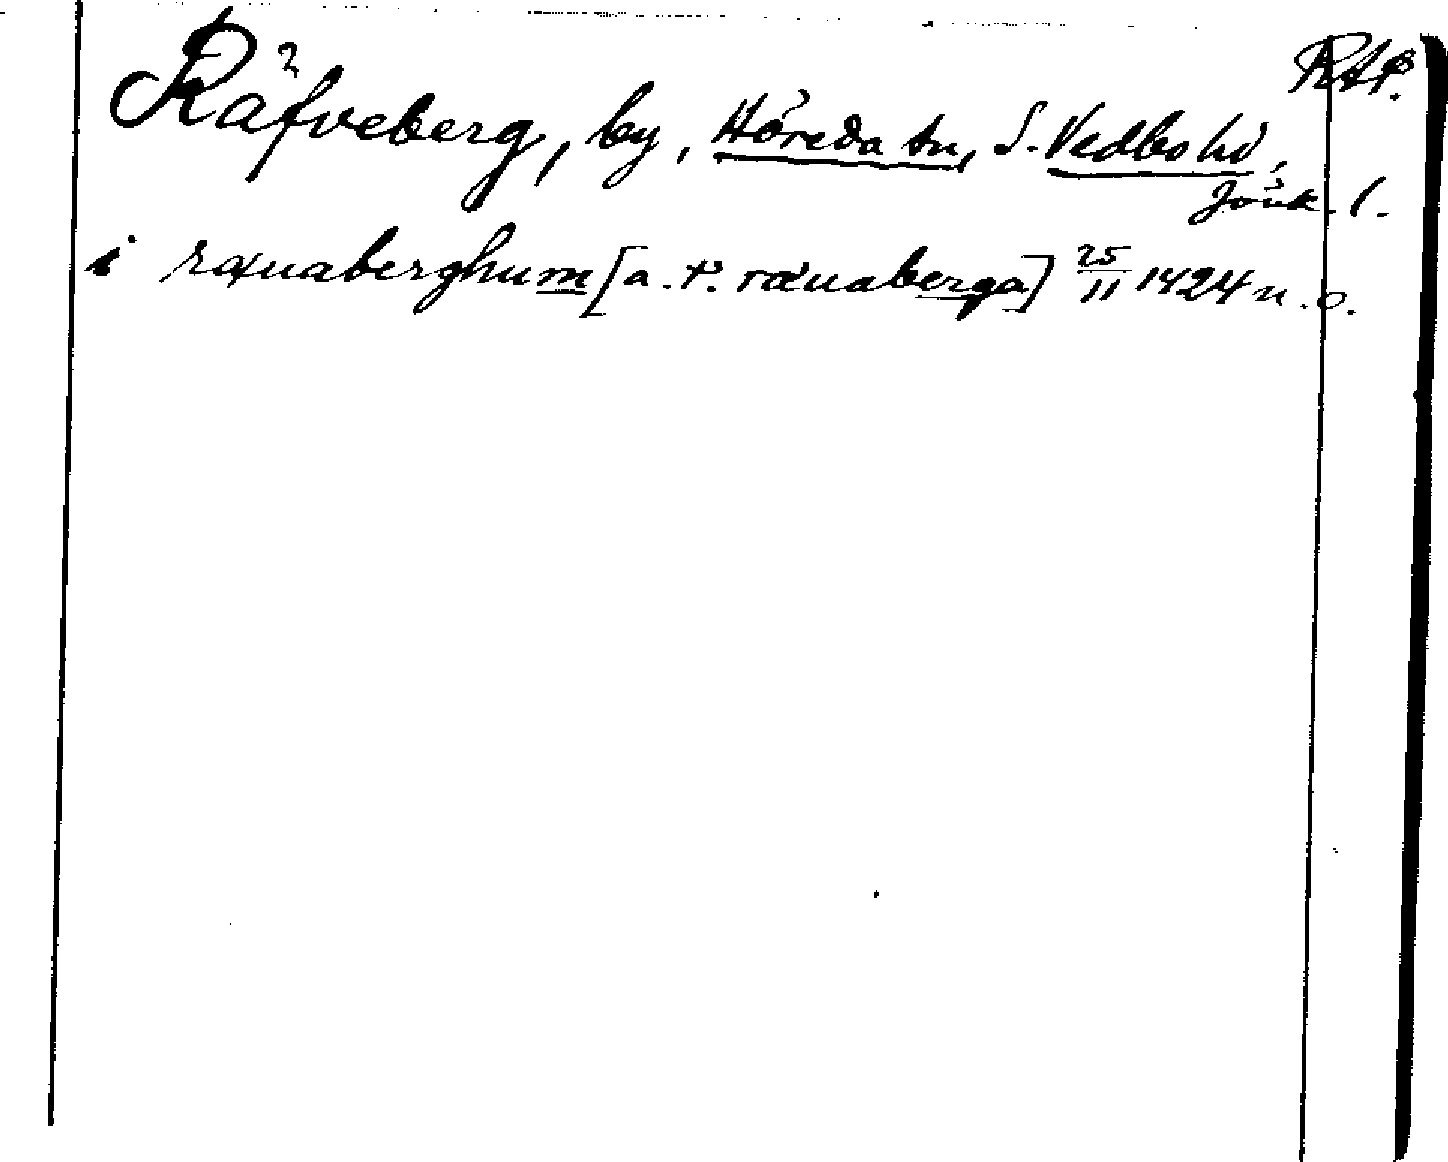 RAP.
Räfveberg, by, Höreda sn, S. Vedbo hd,
Jönk. l.
i ræuaberghum [a. t. ræuaberga] 25/11 1424 n. o.